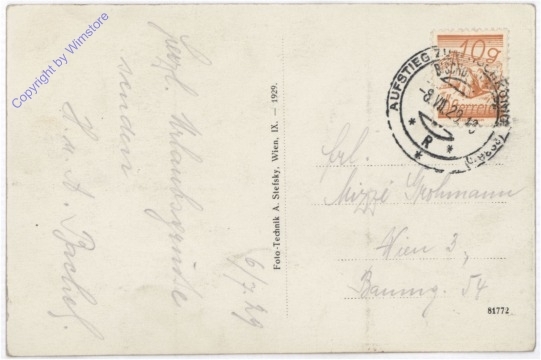 Copyright by Wimstore
Herzl. Urlaubsgrüsse
senden
H. u. A. Bachel.
6/7.29
Foto-Technik A. Stefsky, Wien, IX. — 1929.
10g
AUFSTIEG ZUM HOCHKÖNIG
BISCHO
-8.VII.29
* R *
*
Frl.
Mizzi Grohmann
Wien 3,
Baumg. 54
81772